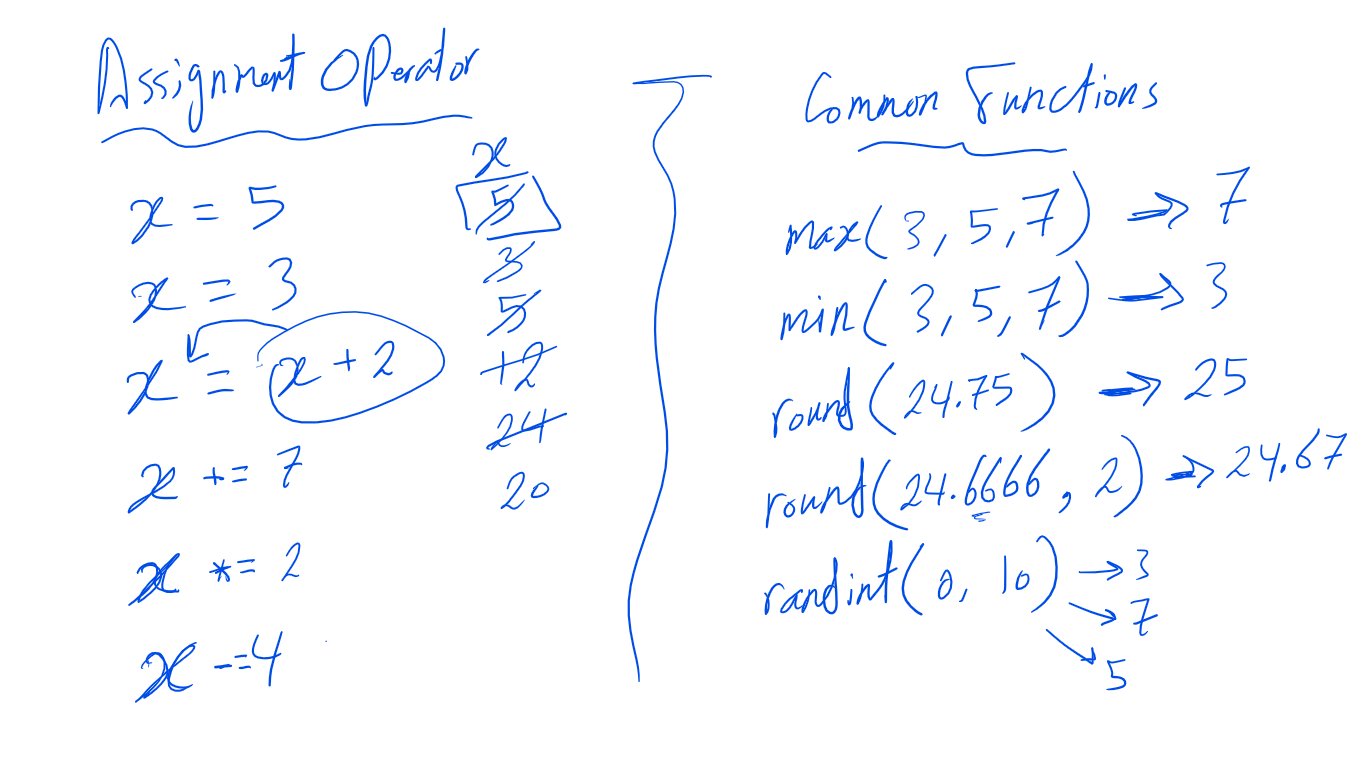 Assignment Operator
x = 5
x = 3
x = x + 2
x += 7
x *= 2
x -= 4
x
5
3
5
+2
24
20
Common Functions
max( 3, 5, 7 ) → 7
min( 3, 5, 7 ) → 3
round( 24.75 ) → 25
round( 24.6666 , 2 ) → 24.67
randint( 0, 10 ) → 3
→ 7
→ 5